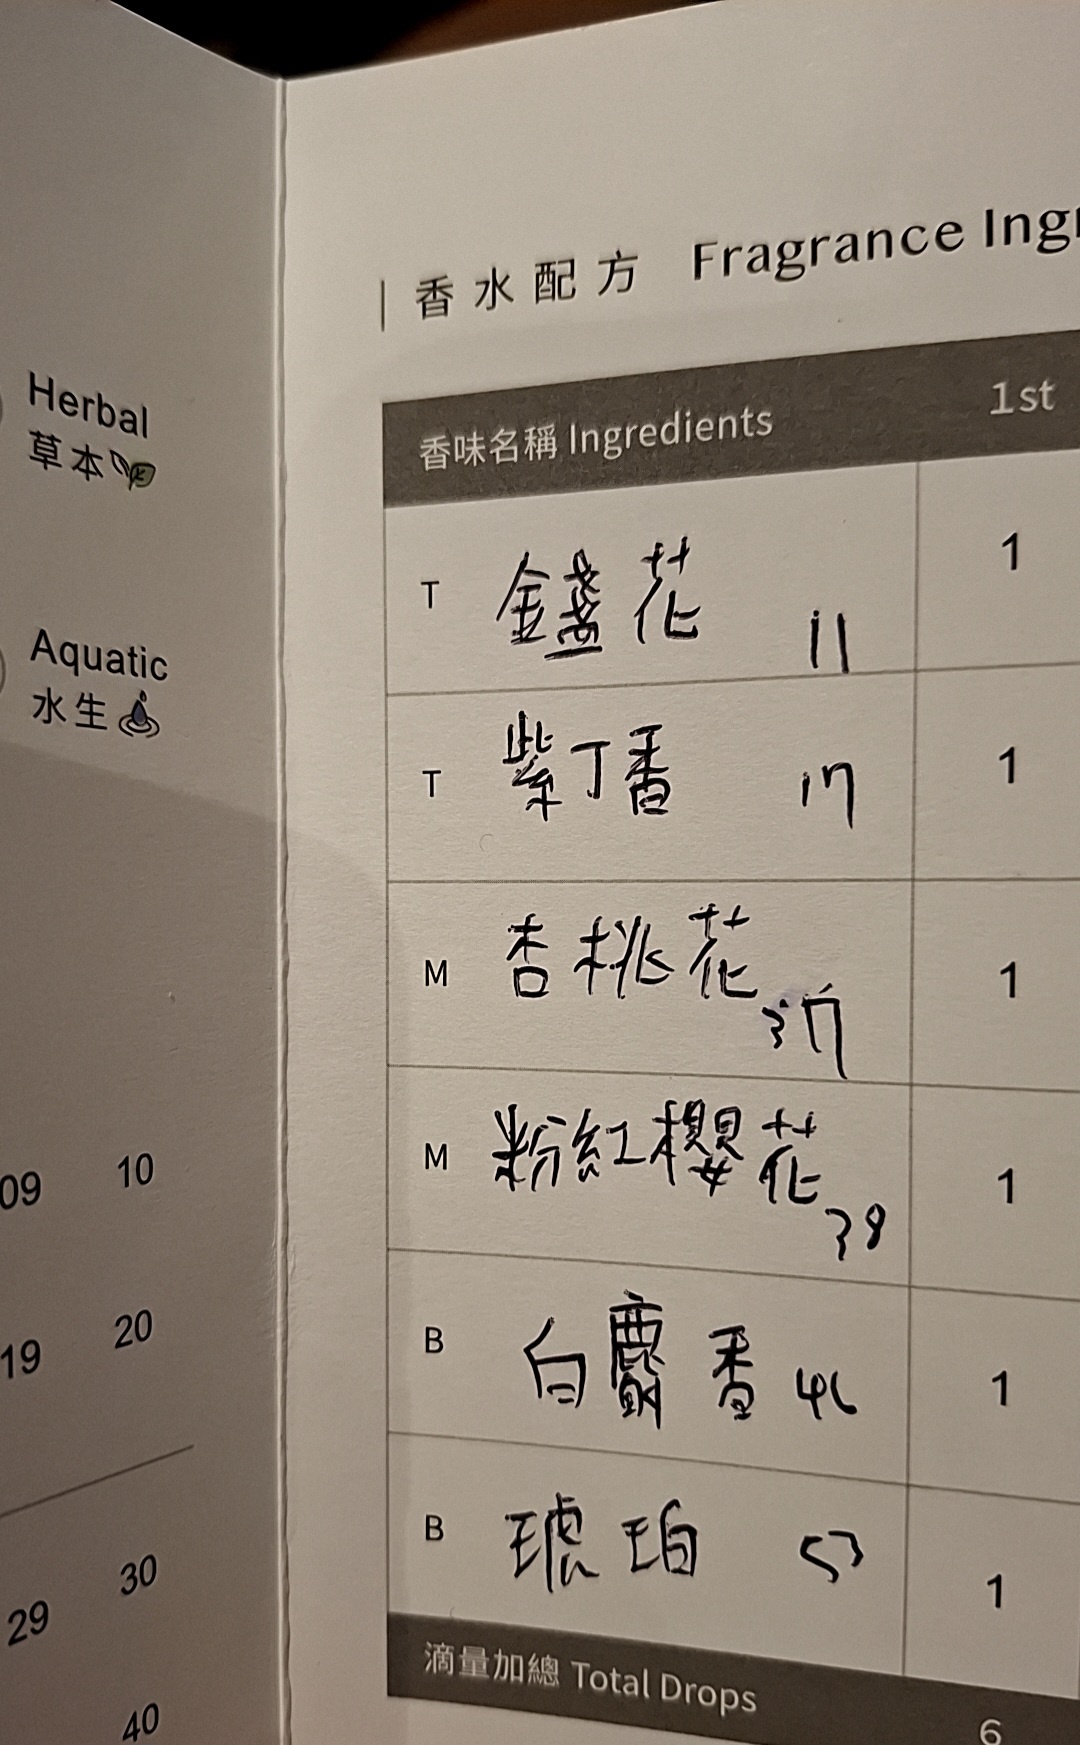 Herbal
草本
Aquatic
水生
09 10
19 20
29 30
40
香水配方 Fragrance Ingr
香味名稱 Ingredients 1st
T 金盞花 11 1
T 紫丁香 17 1
M 杏桃花 37 1
M 粉紅櫻花 38 1
B 白麝香 46 1
B 琥珀 53 1
滴量加總 Total Drops 6